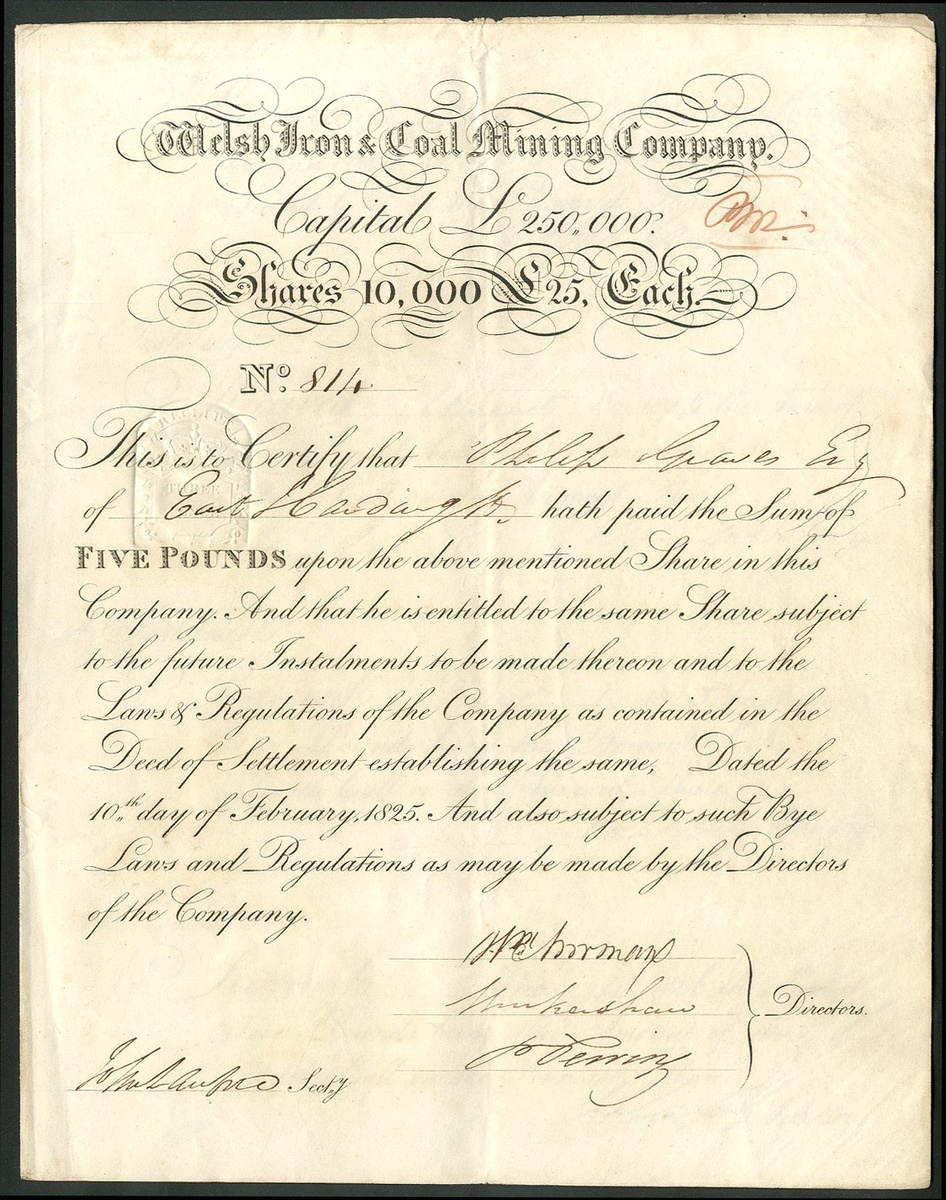 Welsh Iron & Coal Mining Company.
Capital £250,,000.
Shares 10,000 £25, Each.
No. 814
This is to Certify that Philip Graves Esq
of East Harding St. hath paid the Sum of
FIVE POUNDS upon the above mentioned Share in this
Company. And that he is entitled to the same Share subject
to the future Instalments to be made thereon and to the
Laws & Regulations of the Company as contained in the
Deed of Settlement establishing the same, Dated the
10,,th day of February, 1825. And also subject to such Bye
Laws and Regulations as may be made by the Directors
of the Company.
Directors.
P Perring
Secty
RECEIPT
THREE